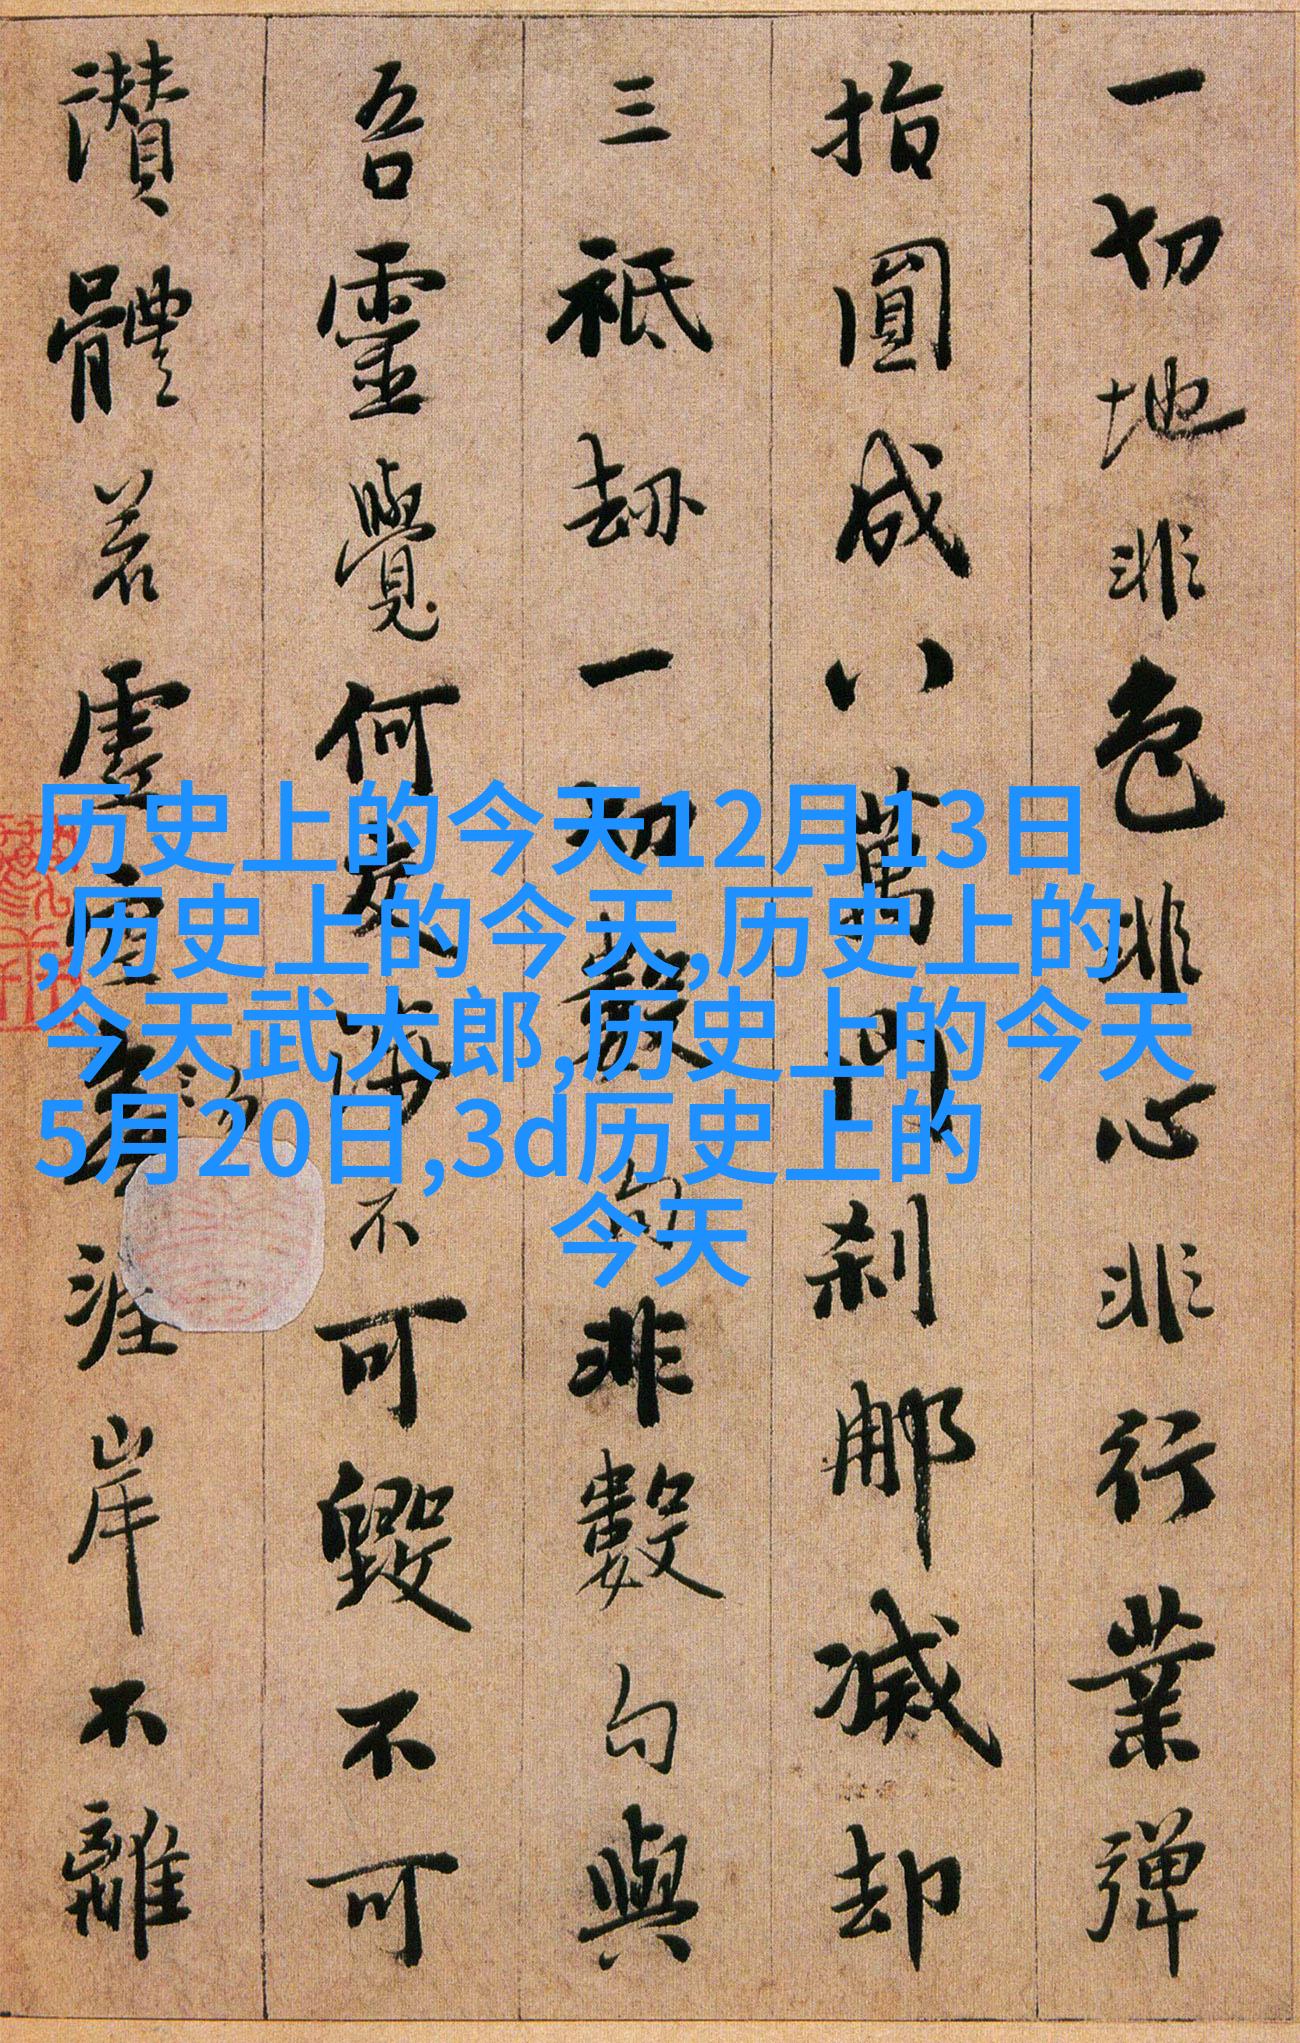 一切地非色非心非行業彈
指圓成八萬門刹那滅却
三祇劫一切數句非數句與
吾靈覺何交涉不可毀不可
讚體若虛空勿涯岸不離
历史上的今天12月13日
,历史上的今天,历史上的
今天武大郎,历史上的今天
5月20日,3d历史上的
今天